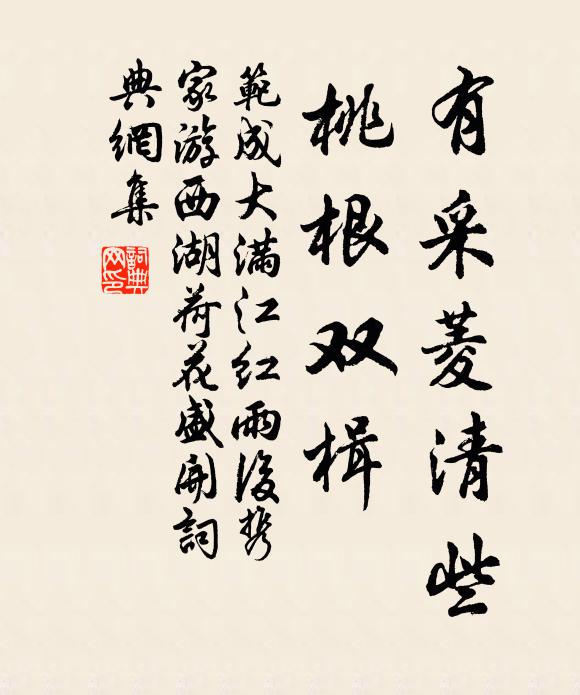 有采菱清些
桃根双楫
範成大满江红雨後携
家游西湖荷花盛開詞
典網集
詞典
网印